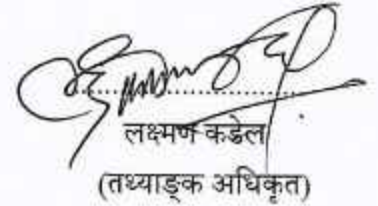 लक्ष्मण कडेल
(तथ्याङ्क अधिकृत)